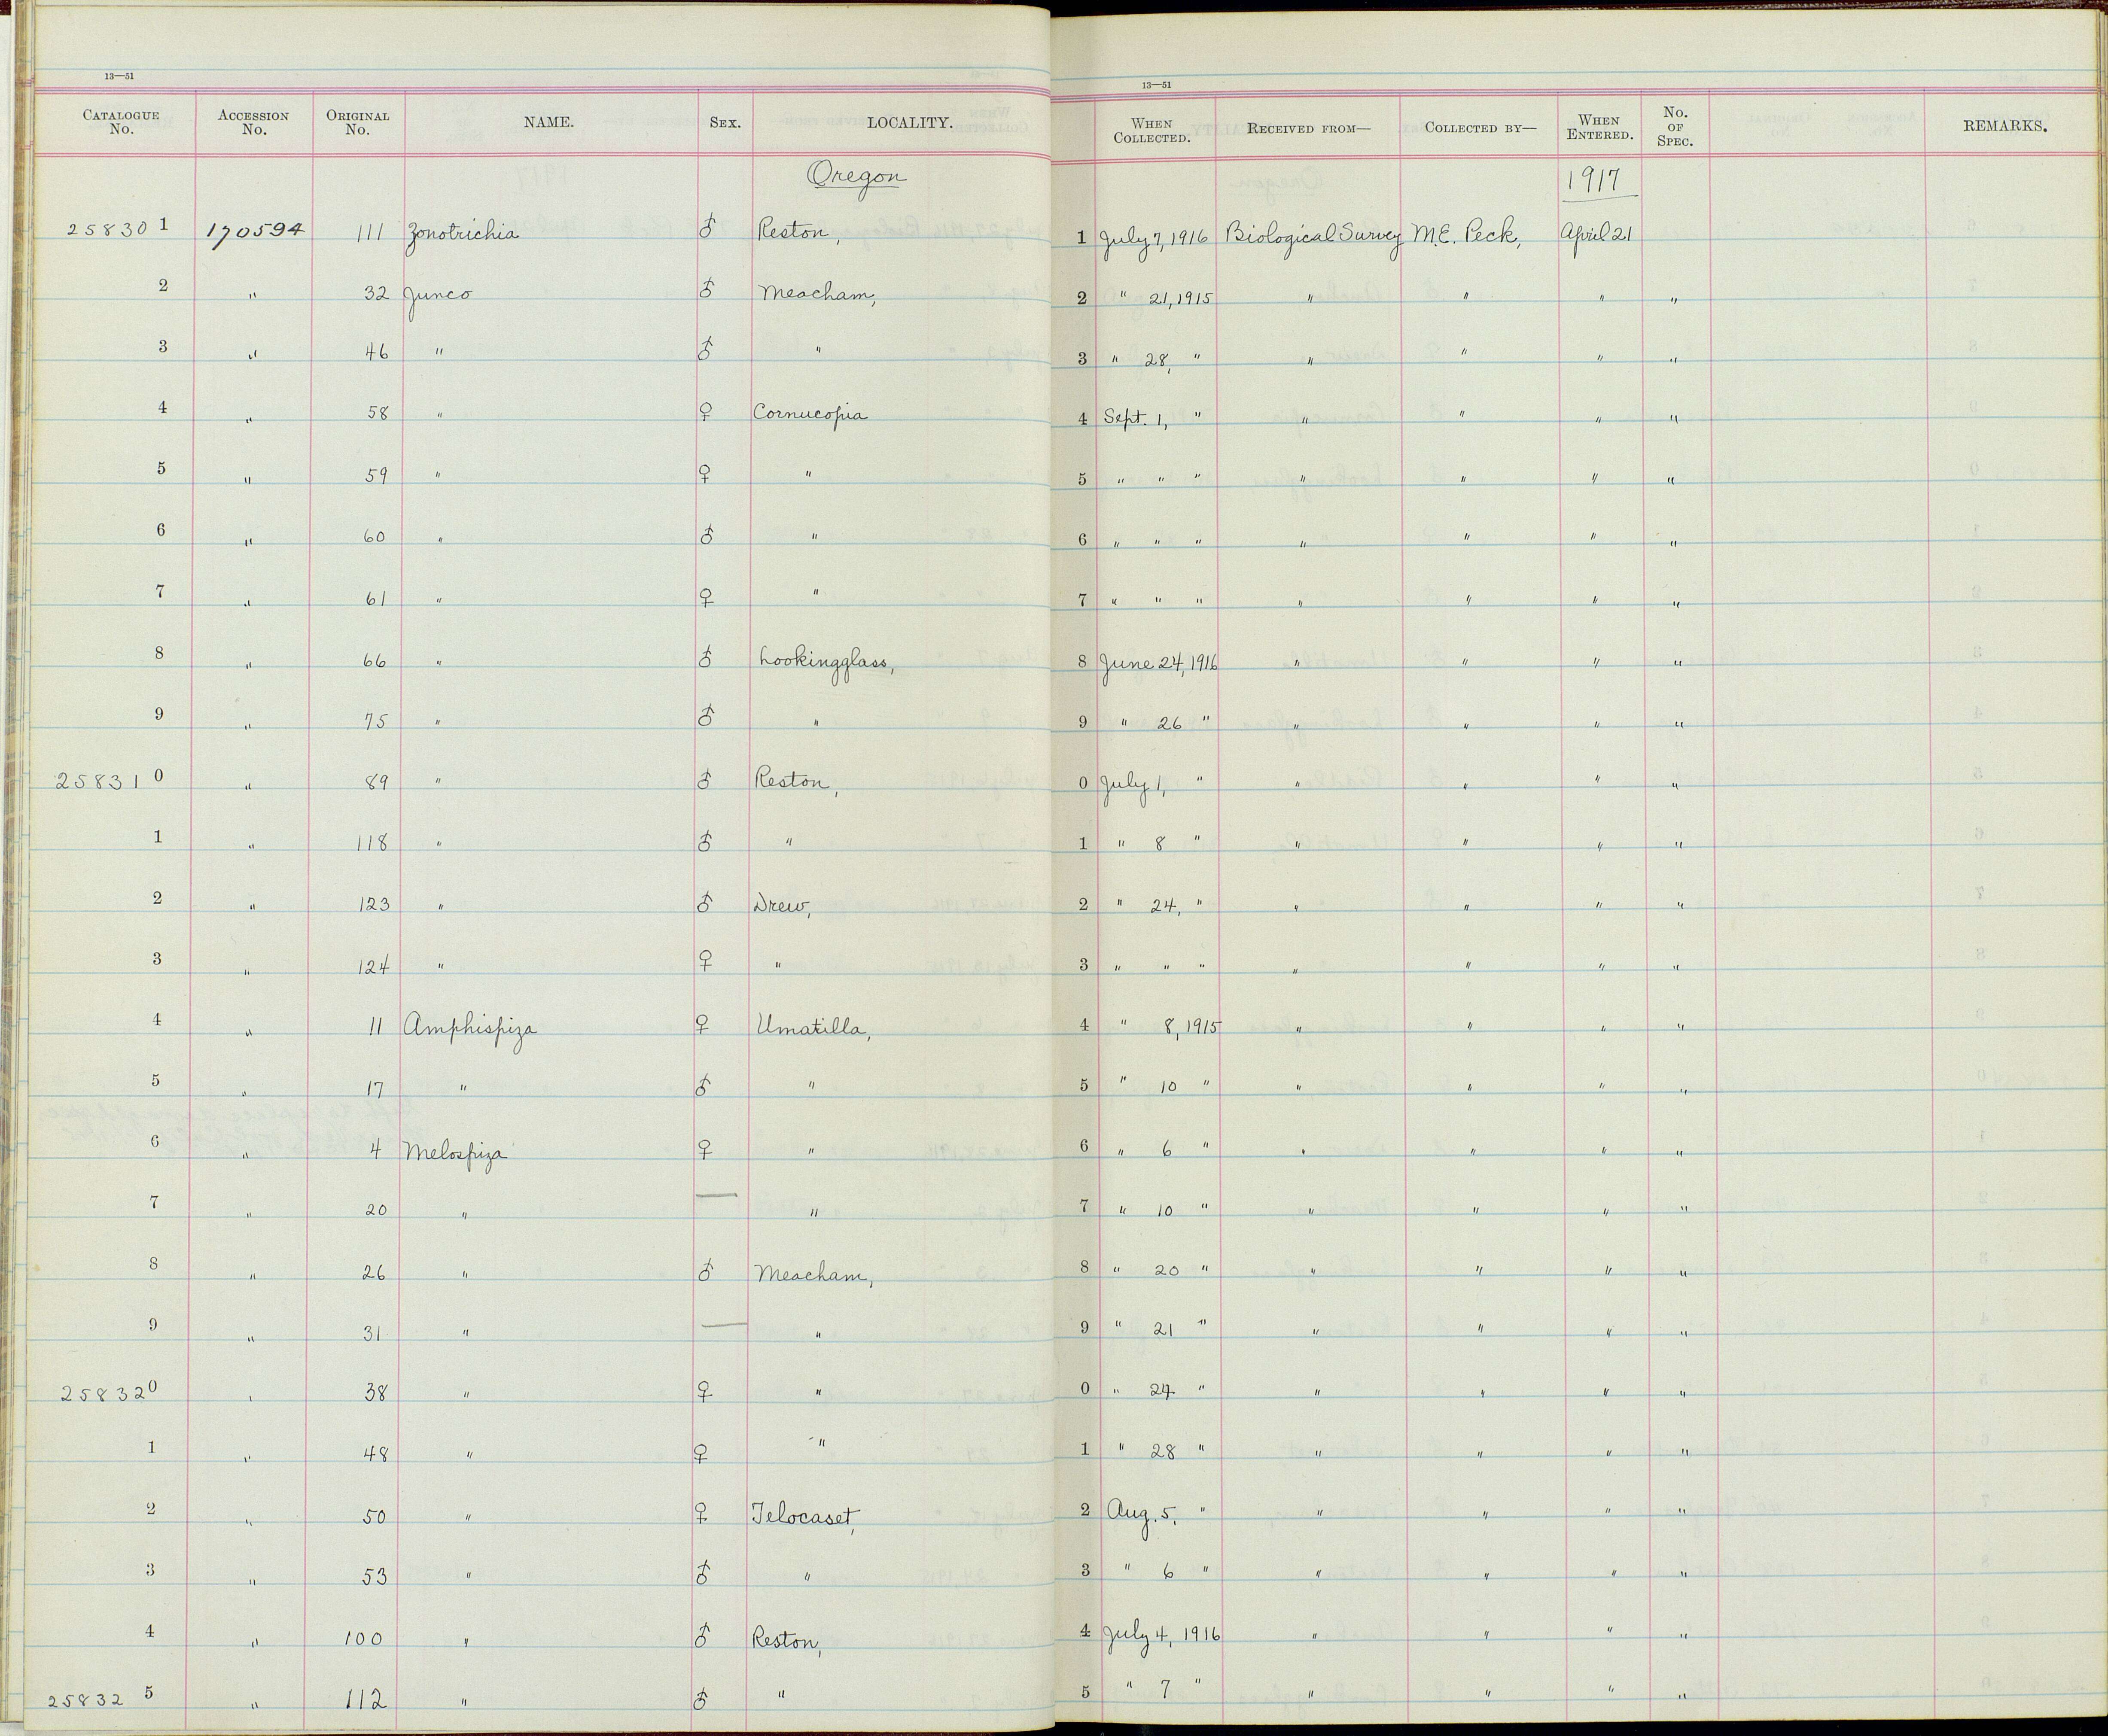 13—51
13—51
CATALOGUE No. ACCESSION No. ORIGINAL No. NAME. SEX. LOCALITY. WHEN COLLECTED. RECEIVED FROM— COLLECTED BY— WHEN ENTERED. No. OF SPEC. REMARKS.
Oregon 1917
258301 170594 111 Zonotrichia ♂ Reston, 1 July 7, 1916 Biological Survey M.E. Peck, April 21
2 " 32 Junco ♂ Meacham, 2 " 21, 1915 " " " "
3 " 46 " ♂ " 3 " 28, " " " " "
4 " 58 " ♀ Cornucopia 4 Sept. 1, " " " " "
5 " 59 " ♀ " 5 " " " " " " "
6 " 60 " ♂ " 6 " " " " " " "
7 " 61 " ♀ " 7 " " " " " " "
8 " 66 " ♂ Lookingglass, 8 June 24, 1916 " " " "
9 " 75 " ♂ " 9 " 26 " " " " "
258310 " 89 " ♂ Reston, 0 July 1, " " " " "
1 " 118 " ♂ " 1 " 8 " " " " "
2 " 123 " ♂ Drew, 2 " 24, " " " " "
3 " 124 " ♀ " 3 " " " " " " "
4 " 11 Amphispiza ♀ Umatilla, 4 " 8, 1915 " " " "
5 " 17 " ♂ " 5 " 10 " " " " "
6 " 4 Melospiza ♀ " 6 " 6 " " " " "
7 " 20 " — " 7 " 10 " " " " "
8 " 26 " ♂ Meacham, 8 " 20 " " " " "
9 " 31 " — " 9 " 21 " " " " "
258320 " 38 " ♀ " 0 " 24 " " " " "
1 " 48 " ♀ " 1 " 28 " " " " "
2 " 50 " ♀ Telocaset, 2 Aug. 5, " " " " "
3 " 53 " ♂ " 3 " 6 " " " " "
4 " 100 " ♂ Reston, 4 July 4, 1916 " " " "
258325 " 112 " ♂ " 5 " 7 " " " " "